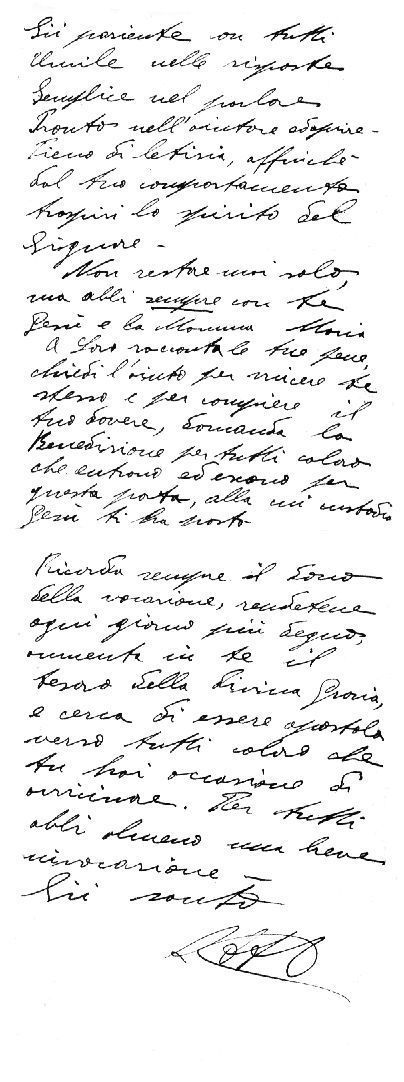 Sii paziente con tutti
Umile nelle risposte
Semplice nel parlare
Pronto nell'aiutare ed aprire -
Pieno di letizia, affinché
dal tuo comportamento
traspiri lo spirito del
Signore -
Non restare mai solo,
ma abbi sempre con te
Gesù e la Mamma Maria
A Loro racconta le tue pene,
chiedi l'aiuto per vincere te
stesso e per compiere il
tuo dovere, domanda la
Benedizione per tutti coloro
che entrano ed escono per
questa porta, alla cui custodia
Gesù ti ha posto
Ricorda sempre il dono
della vocazione, rendetene
ogni giorno più degno,
aumenta in te il
tesoro della divina Grazia,
e cerca di essere apostolo
verso tutti coloro che
tu hai occasione di
avvicinare. Per tutti
abbi almeno una breve
invocazione -
Sii santo